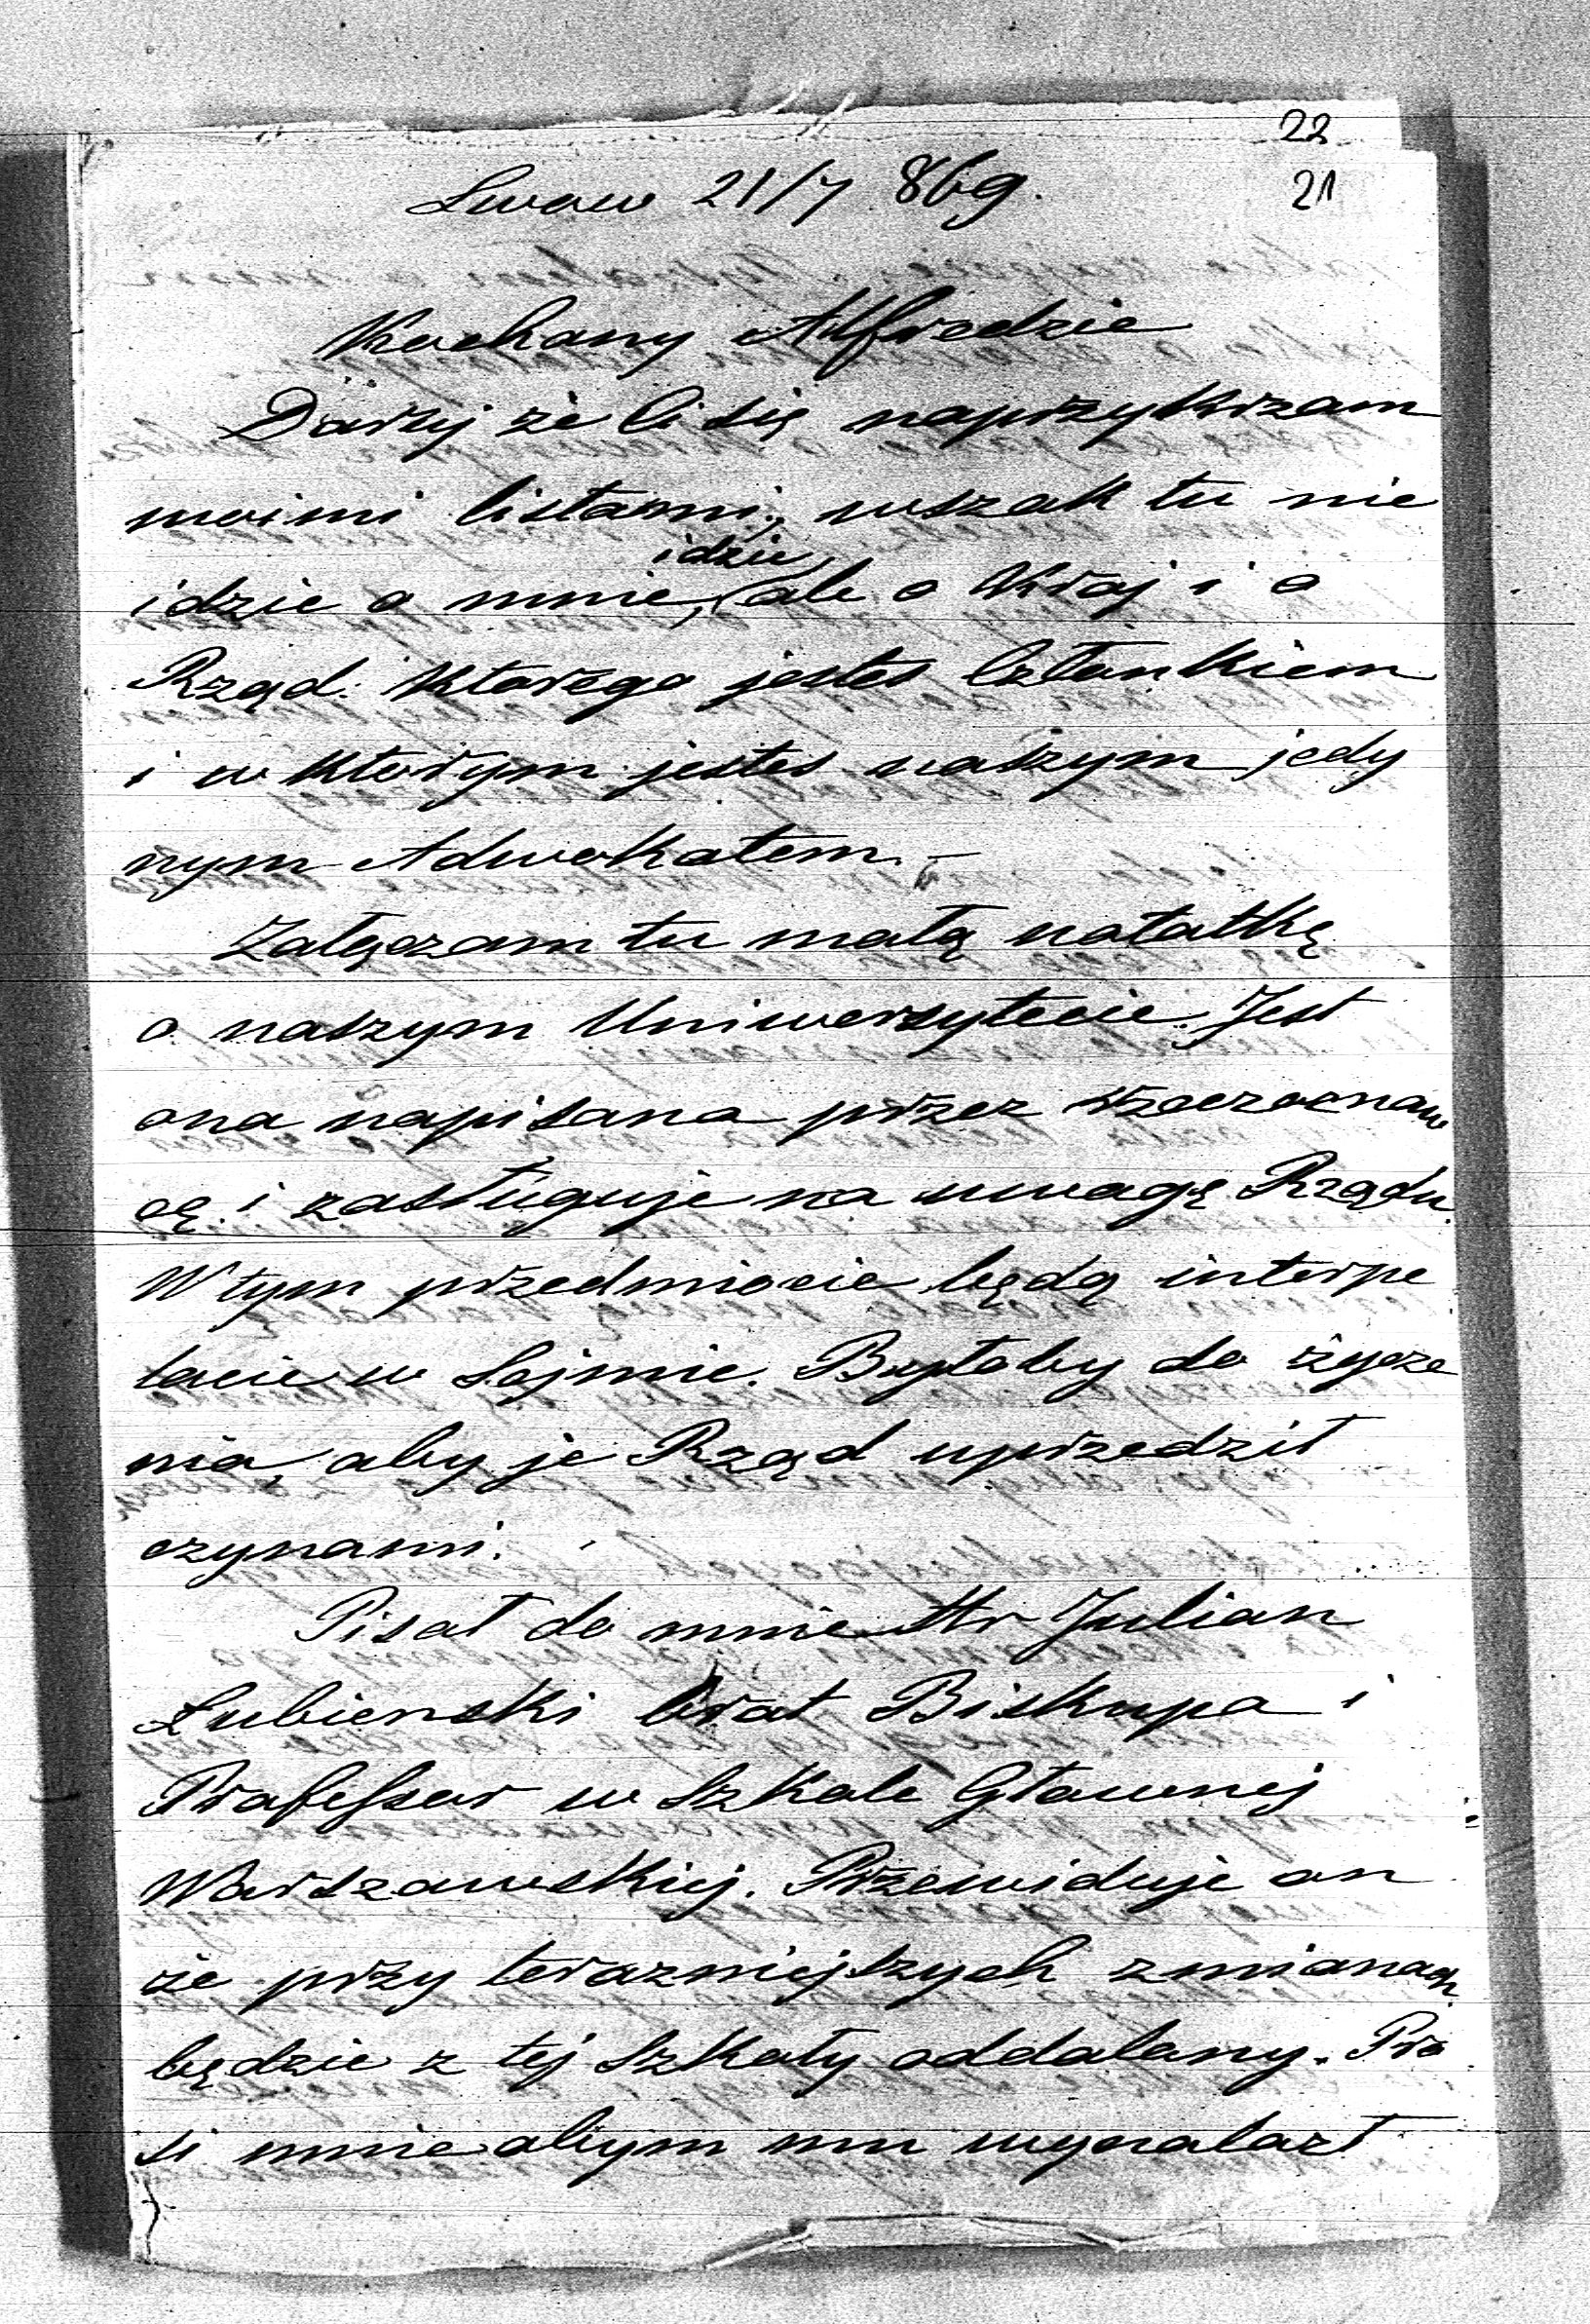 22
Lwow 21/7 869.
21
Kochany Alfredzie
Daruj że Ci się naprzykrzam
moimi listami, wszak tu nie
idzie
idzie o mnie, ale o Kraj i o
Rząd. Ktorego jestes Członkiem
i w Ktorym jestes naszym jedy
nym Adwokatem. –
Załączam tu małą notatkę
o naszym Uniwersytecie. Jest
ona napisana przez rzeczoznaw
cę i zasługuje na uwagę Rządu.
W tym przedmiocie będą interpe
lacie w Sejmie. Byłoby do życze
nia, aby je Rząd uprzedził
czynami.
Pisał do mnie Hr Julian
Łubienski brat Biskupa i
Professor w Szkole Głownej
Warszawskiej. Przewiduje on
że przy terazniejszych zmianach
będzie z tej Szkoły oddalony. Pro
si mnie abym mu wynalazł